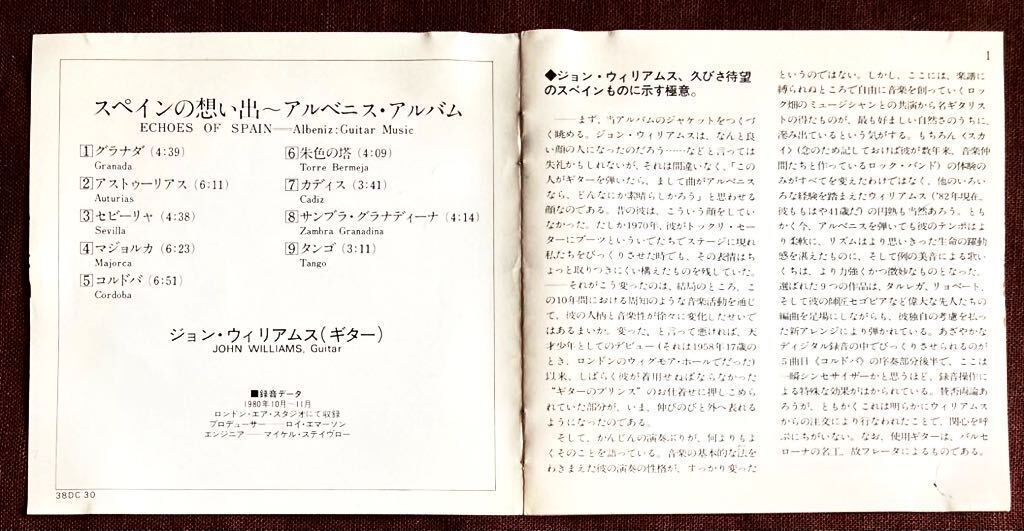 スペインの想い出〜アルベニス・アルバム
ECHOES OF SPAIN——Albeniz:Guitar Music
1 グラナダ (4:39)
Granada
2 アストゥーリアス (6:11)
Auturias
3 セビーリャ (4:38)
Sevilla
4 マジョルカ (6:23)
Majorca
5 コルドバ (6:51)
Cordoba
6 朱色の塔 (4:09)
Torre Bermeja
7 カディス (3:41)
Cadiz
8 サンブラ・グラナディーナ (4:14)
Zambra Granadina
9 タンゴ (3:11)
Tango
ジョン・ウィリアムス(ギター)
JOHN WILLIAMS, Guitar
■録音データ
1980年10月〜11月
ロンドン・エア・スタジオにて収録
プロデューサー——ロイ・エマーソン
エンジニア——マイケル・ステイヴロー
38DC 30
1
◆ジョン・ウィリアムス、久びさ待望
のスペインものに示す極意。
——まず、当アルバムのジャケットをつくづ
く眺める。ジョン・ウィリアムスは、なんと良
い顔の人になったのだろう……などと言っては
失礼かもしれないが、それは間違いなく、「この
人がギターを弾いたら、まして曲がアルベニス
なら、どんなにか素晴らしかろう」と思わせる
顔なのである。昔の彼は、こういう顔をしてい
なかった。たしか1970年、彼がトックリ・セー
ターにブーツといういでたちでステージに現れ
私たちをびっくりさせた時でも、その表情はち
ょっと取りつきにくい構えたものを残していた。
——それがこう変ったのは、結局のところ、こ
の10年間における周知のような音楽活動を通じ
て、彼の人柄と音楽性が徐々に変化したせいで
はあるまいか。変った、と言って悪ければ、天
才少年としてのデビュー(それは1958年17歳の
とき、ロンドンのウィグモア・ホールでだった)
以来、しばらく彼が着用せねばならなかった
“ギターのプリンス”のお仕着せに押しこめら
れていた部分が、いま、伸びのびと外へ表れる
ようになったのである。
そして、かんじんの演奏ぶりが、何よりもよ
くそのことを語っている。音楽の基本的な法を
わきまえた彼の演奏の性格が、すっかり変った
というのではない。しかし、ここには、楽譜に
縛られぬところで自由に音楽を創っていくロッ
ク畑のミュージシャンとの共演から名ギタリス
トの得たものが、最も好ましい自然さのうちに、
滲み出ているという気がする。もちろん〈スカ
イ〉(念のため記しておけば彼が数年来、音楽仲
間たちと作っているロック・バンド)の体験の
みがすべてを変えたわけではなく、他のいろい
ろな経験を踏まえたウィリアムス('82年現在、
彼ももはや41歳だ)の円熟も当然あろう。とも
かく今、アルベニスを弾いても彼のテンポはよ
り柔軟に、リズムはより思いきった生命の躍動
感を湛えたものに、そして例の美音による歌い
くちは、より力強くかつ微妙なものとなった。
選ばれた9つの作品は、タルレガ、リョベート、
そして彼の師匠セゴビアなど偉大な先人たちの
編曲を足場にしながらも、彼独自の考慮を払っ
た新アレンジにより弾かれている。あざやかな
ディジタル録音の中でびっくりさせられるのが
5曲目〈コルドバ〉の序奏部分後半で、ここは
一瞬シンセサイザーかと思うほど、録音操作に
よる特殊な効果がはかられている。賛否両論あ
ろうが、ともかくこれは明らかにウィリアムス
からの注文により行なわれたことで、関心を呼
ぶにちがいない。なお、使用ギターは、バルセ
ローナの名工、故フレータによるものである。